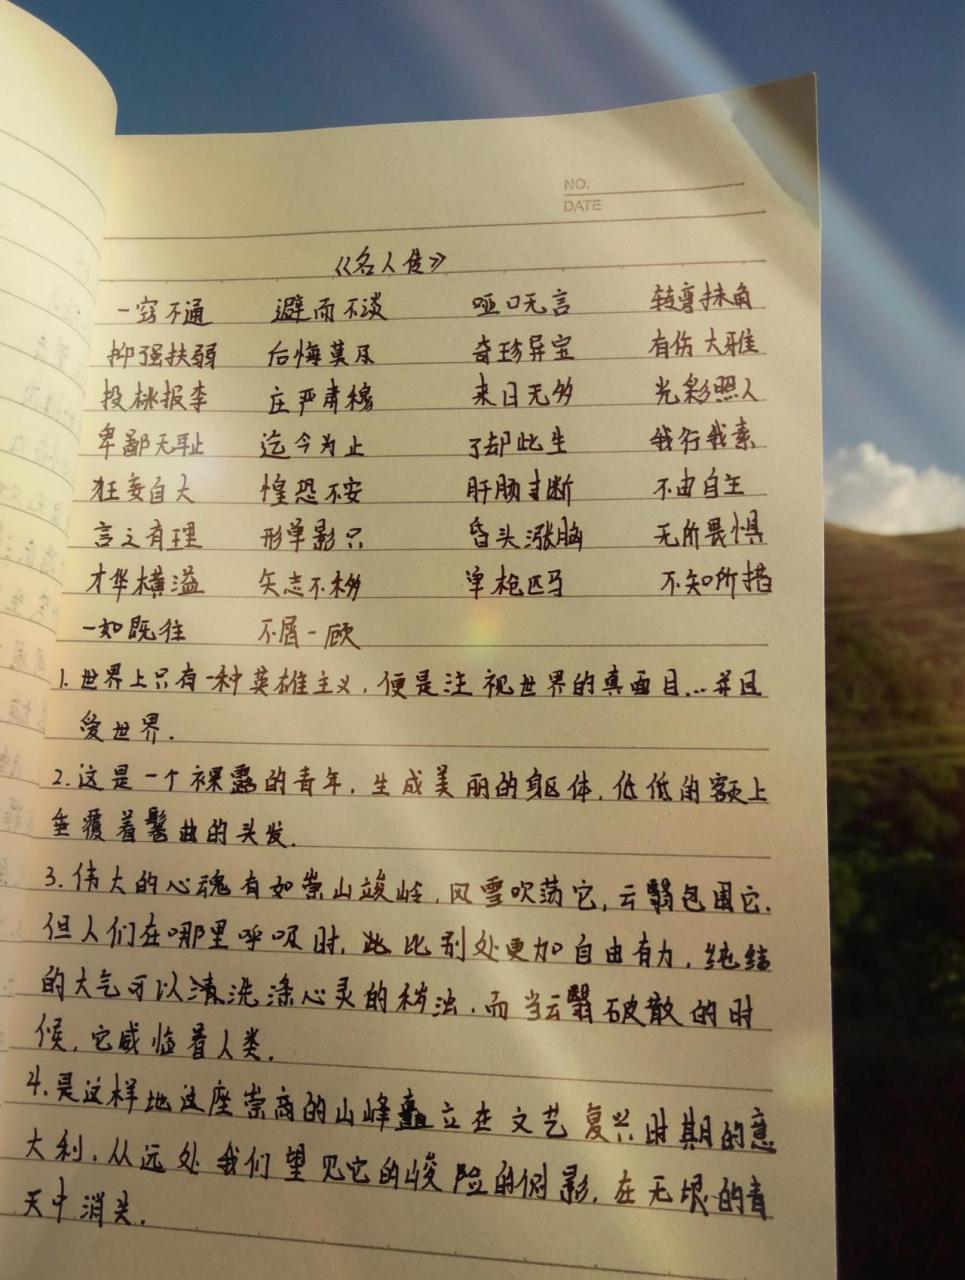 NO.
DATE
《名人传》
一窍不通 避而不谈 哑口无言 转弯抹角
抑强扶弱 后悔莫及 奇珍异宝 有伤大雅
投桃报李 庄严肃穆 来日无多 光彩照人
卑鄙无耻 迄今为止 了却此生 我行我素
狂妄自大 惶恐不安 肝肠寸断 不由自主
言之有理 形单影只 昏头涨脑 无所畏惧
才华横溢 矢志不移 单枪匹马 不知所措
一如既往 不屑一顾
1.世界上只有一种英雄主义,便是注视世界的真面目…并且
爱世界.
2.这是一个裸露的青年,生成美丽的躯体,低低的额上
垂覆着鬈曲的头发.
3.伟大的心魂有如崇山峻岭,风雪吹荡它,云翳包围它.
但人们在哪里呼吸时,此比别处更加自由有力,纯结
的大气可以清洗涤心灵的秽浊,而当云翳破散的时
候,它威临着人类.
4.是这样地这座崇高的山峰矗立在文艺复兴时期的意
大利,从远处我们望见它的峻险的侧影,在无垠的青
天中消失.